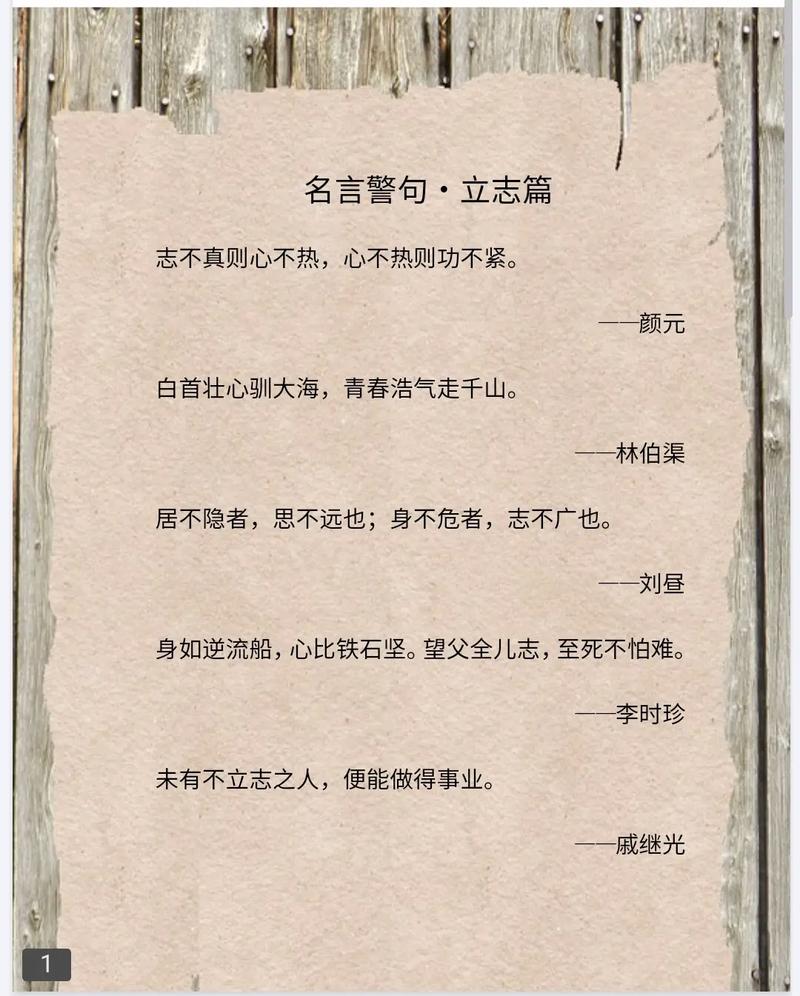 名言警句·立志篇
志不真则心不热，心不热则功不紧。
——颜元
白首壮心驯大海，青春浩气走千山。
——林伯渠
居不隐者，思不远也；身不危者，志不广也。
——刘昼
身如逆流船，心比铁石坚。望父全儿志，至死不怕难。
——李时珍
未有不立志之人，便能做得事业。
——戚继光
1